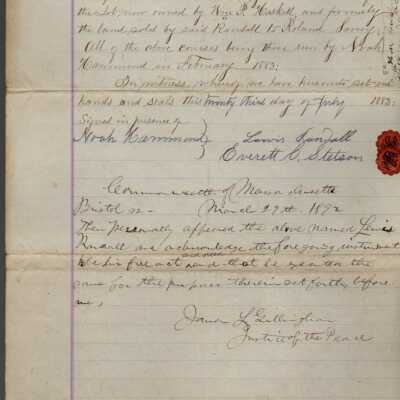 the Lot, now owned by Wm P. Haskell, and formerly
the land sold by said Randall to Roland Savery
All of the above courses being those run by Noah
Hammond in February 1883.
In witness whereof we have hereunto set our
hands and seals this twenty third day of July 1883.
Signed in presence of
Noah Hammond } Lewis Randall
Everett C. Stetson
Commonwealth of Massachusetts
Bristol ss - March 29th 1892
Then Personally appeared the above named Lewis
Randall and acknowledge the foregoing instrument
to be his free act and deed and that he executed the
same for the purposes therein set forth, before
me,
James L Gillingham
Justice of the Peace